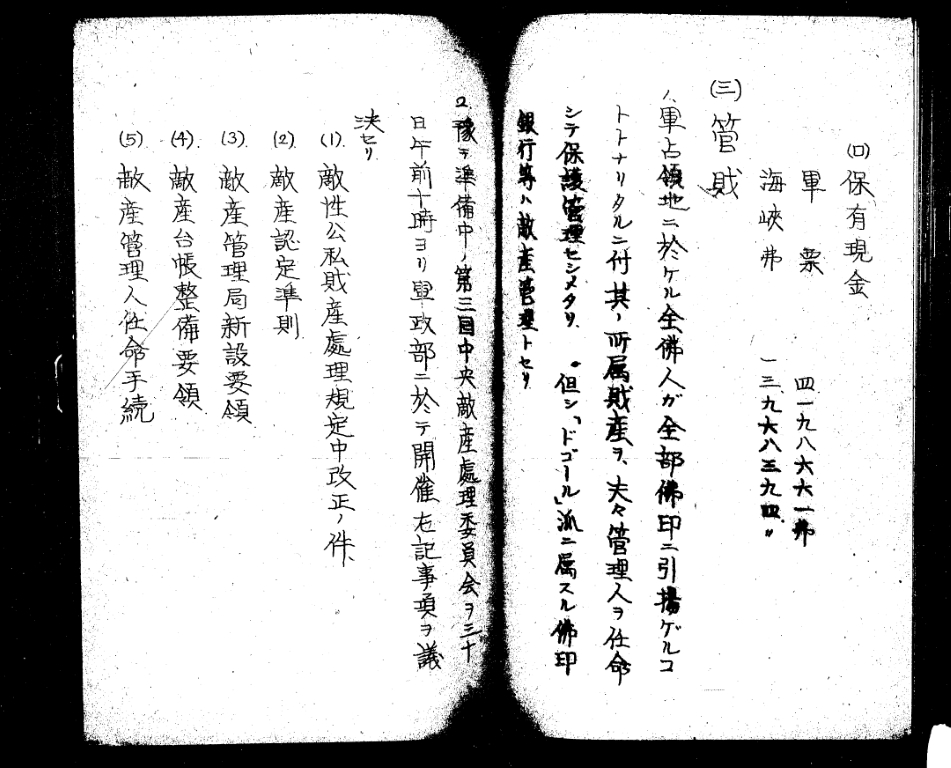 (ロ)保有現金
軍票 四一九八六六一弗
海峡弗 一三九六八三九四〃
(三)管財
1、軍占領地ニ於ケル全佛人ガ全部佛印ニ引揚ゲルコ
トトナリタルニ付其ノ所属財産ヲ、夫々管理人ヲ任命
シテ保護管理セシメタリ。但シ「ドゴール」派ニ属スル佛印
銀行等ハ敵産管理トセリ
2、豫テ準備中ノ第三回中央敵産處理委員会ヲ三十
日午前十時ヨリ軍政部ニ於テ開催左記事項ヲ議
決セリ
(1).敵性公私財産處理規定中改正ノ件
(2).敵産認定準則
(3).敵産管理局新設要領
(4).敵産台帳整備要領
(5)敵産管理人任命手続